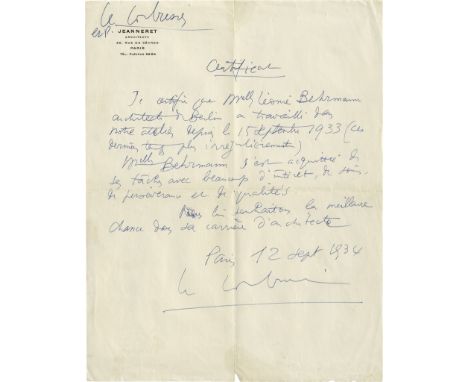 Le Corbusier
et P. JEANNERET
ARCHITECTE
35, RUE DE SÈVRES
PARIS
Certificat
Je certifie que Melle Léonie Behrmann
architecte de Berlin a travaillé dans
notre atelier depuis le 15 septembre 1933 (ces
derniers temps plus irrégulièrement)
Melle Behrmann s'est acquittée de
ses tâches avec beaucoup d'intérêt, de soin,
de persévérance et de qualités
Nous lui souhaitons la meilleure
chance dans sa carrière d'architecte
Paris 12 sept 1934
Le Corbusier